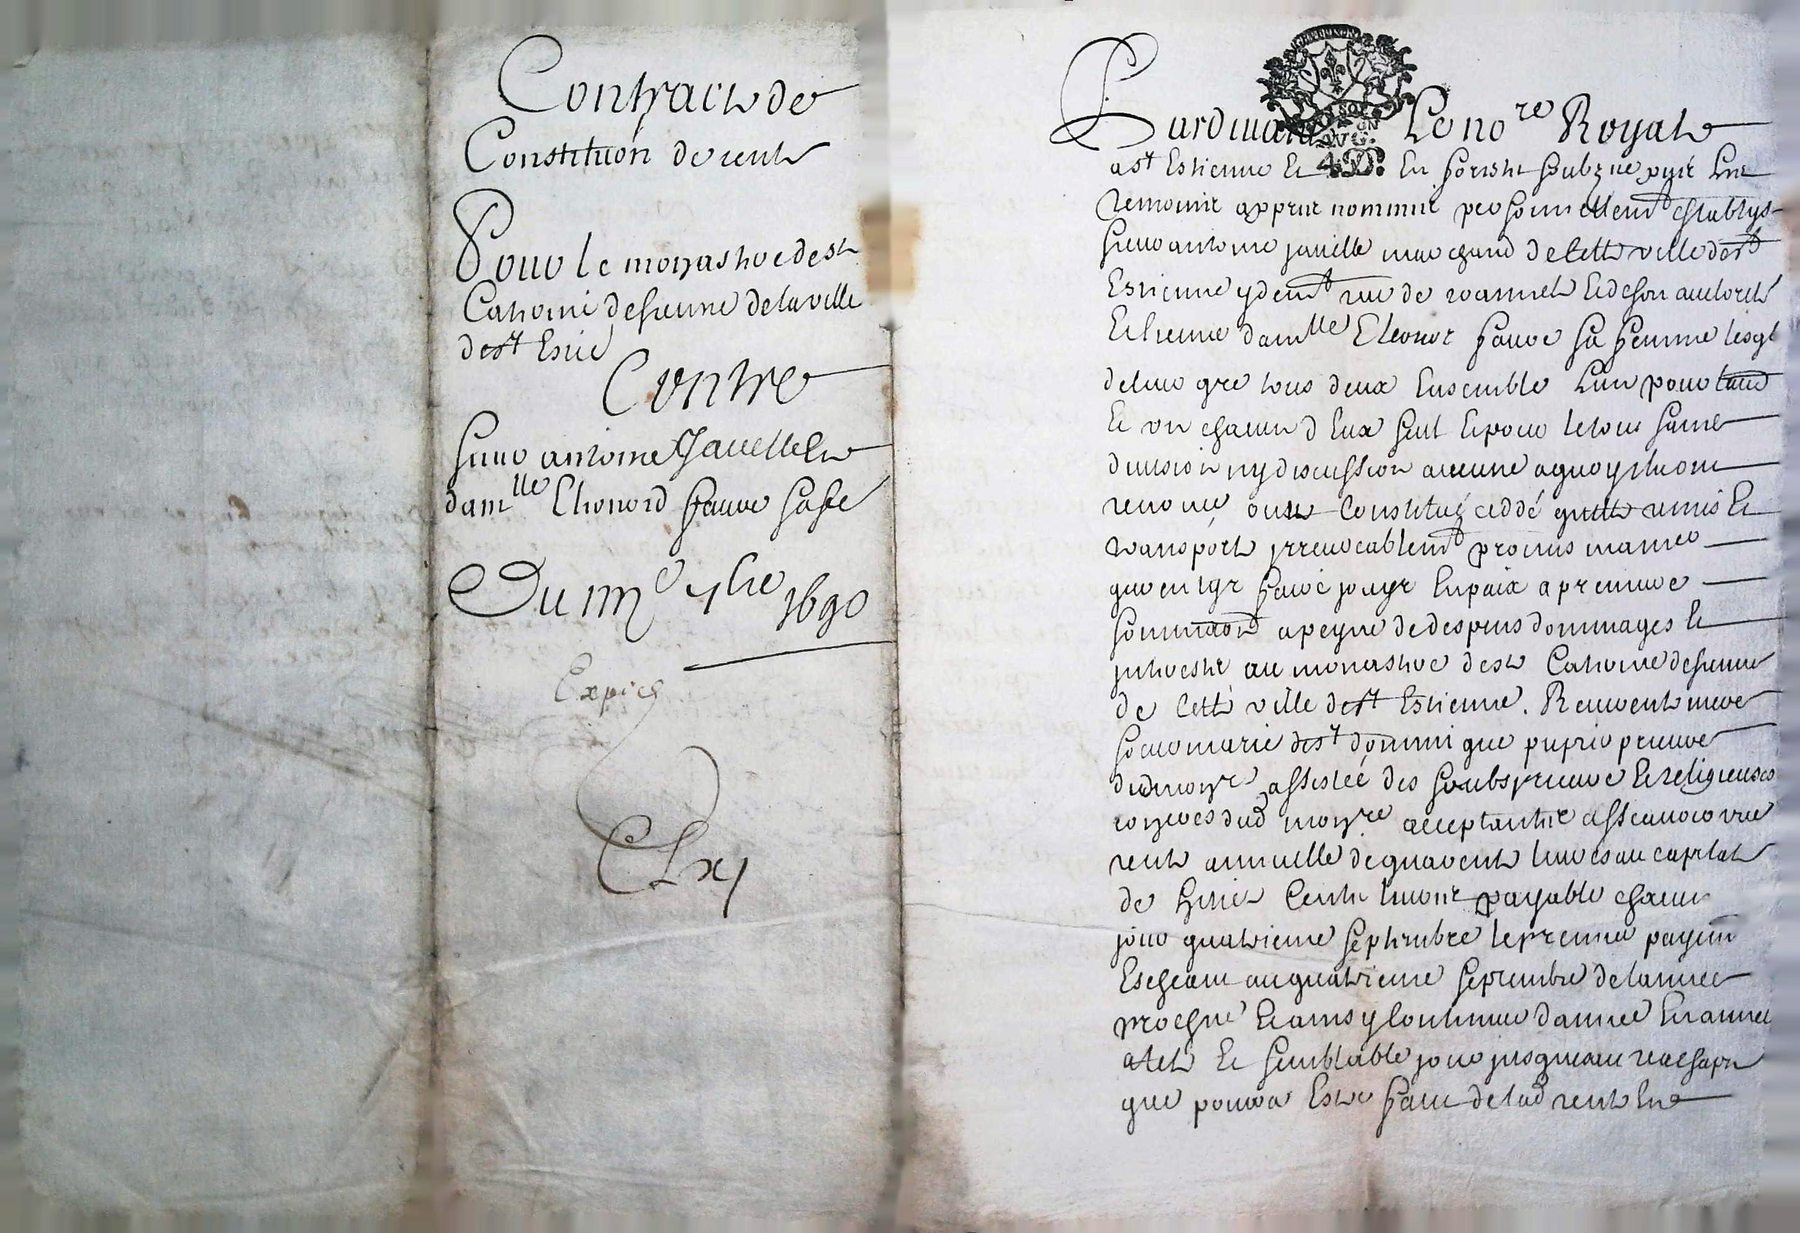 Contract de
Constitution de rente
Pour le monastere de ste
Catherine de sienne de la ville
de st Estie
Contre
sieur antoine Javelle et
damlle Elionord faure sa fe
Du iiije 7bre 1690
Expiée
CLxj
GENERALITE
SOLS
4.D.
Pardevant Le nore Royal
a st Estienne et en forest soubzne pnt Les
temoins appres nommes personnellemt establys
sieur antoine javelle marchand de cette ville de st
Estienne y demt rue de roannel et de son authorite
Et licence damlle Eleonor faure sa femme lesqls
de leur gre tous deux Ensemble L'un pour l'aue
Et un chacun d'Eux seul Et pour le tout sans
division ny discussion aucune a quoy ils ont
renoncé ont Constitué ceddé quitté remis Et
transporté irrevocablemt promis mainte
garentir faire jouyr En paix a premiere
sommaon a peyne de despens dommages Et
interests au monastere de ste Catherine de sienne
de Cette ville de st Estienne. Reverente mere
soeur marie de st dominique prieure
dud monre assistée des soubsprieure Et religieuses
dud monre acceptantes assavoir une
rente annuelle de quarente livres au capital
de huict Cents livres payable chacun
jour quatrieme septembre le premier payemt
Escheant au quatrieme septembre de lannee
proche Et ainsy Continuer dannee En annee
a tel Et semblable jour jusques au reachapt
que pourra Estre faict de lad rente En